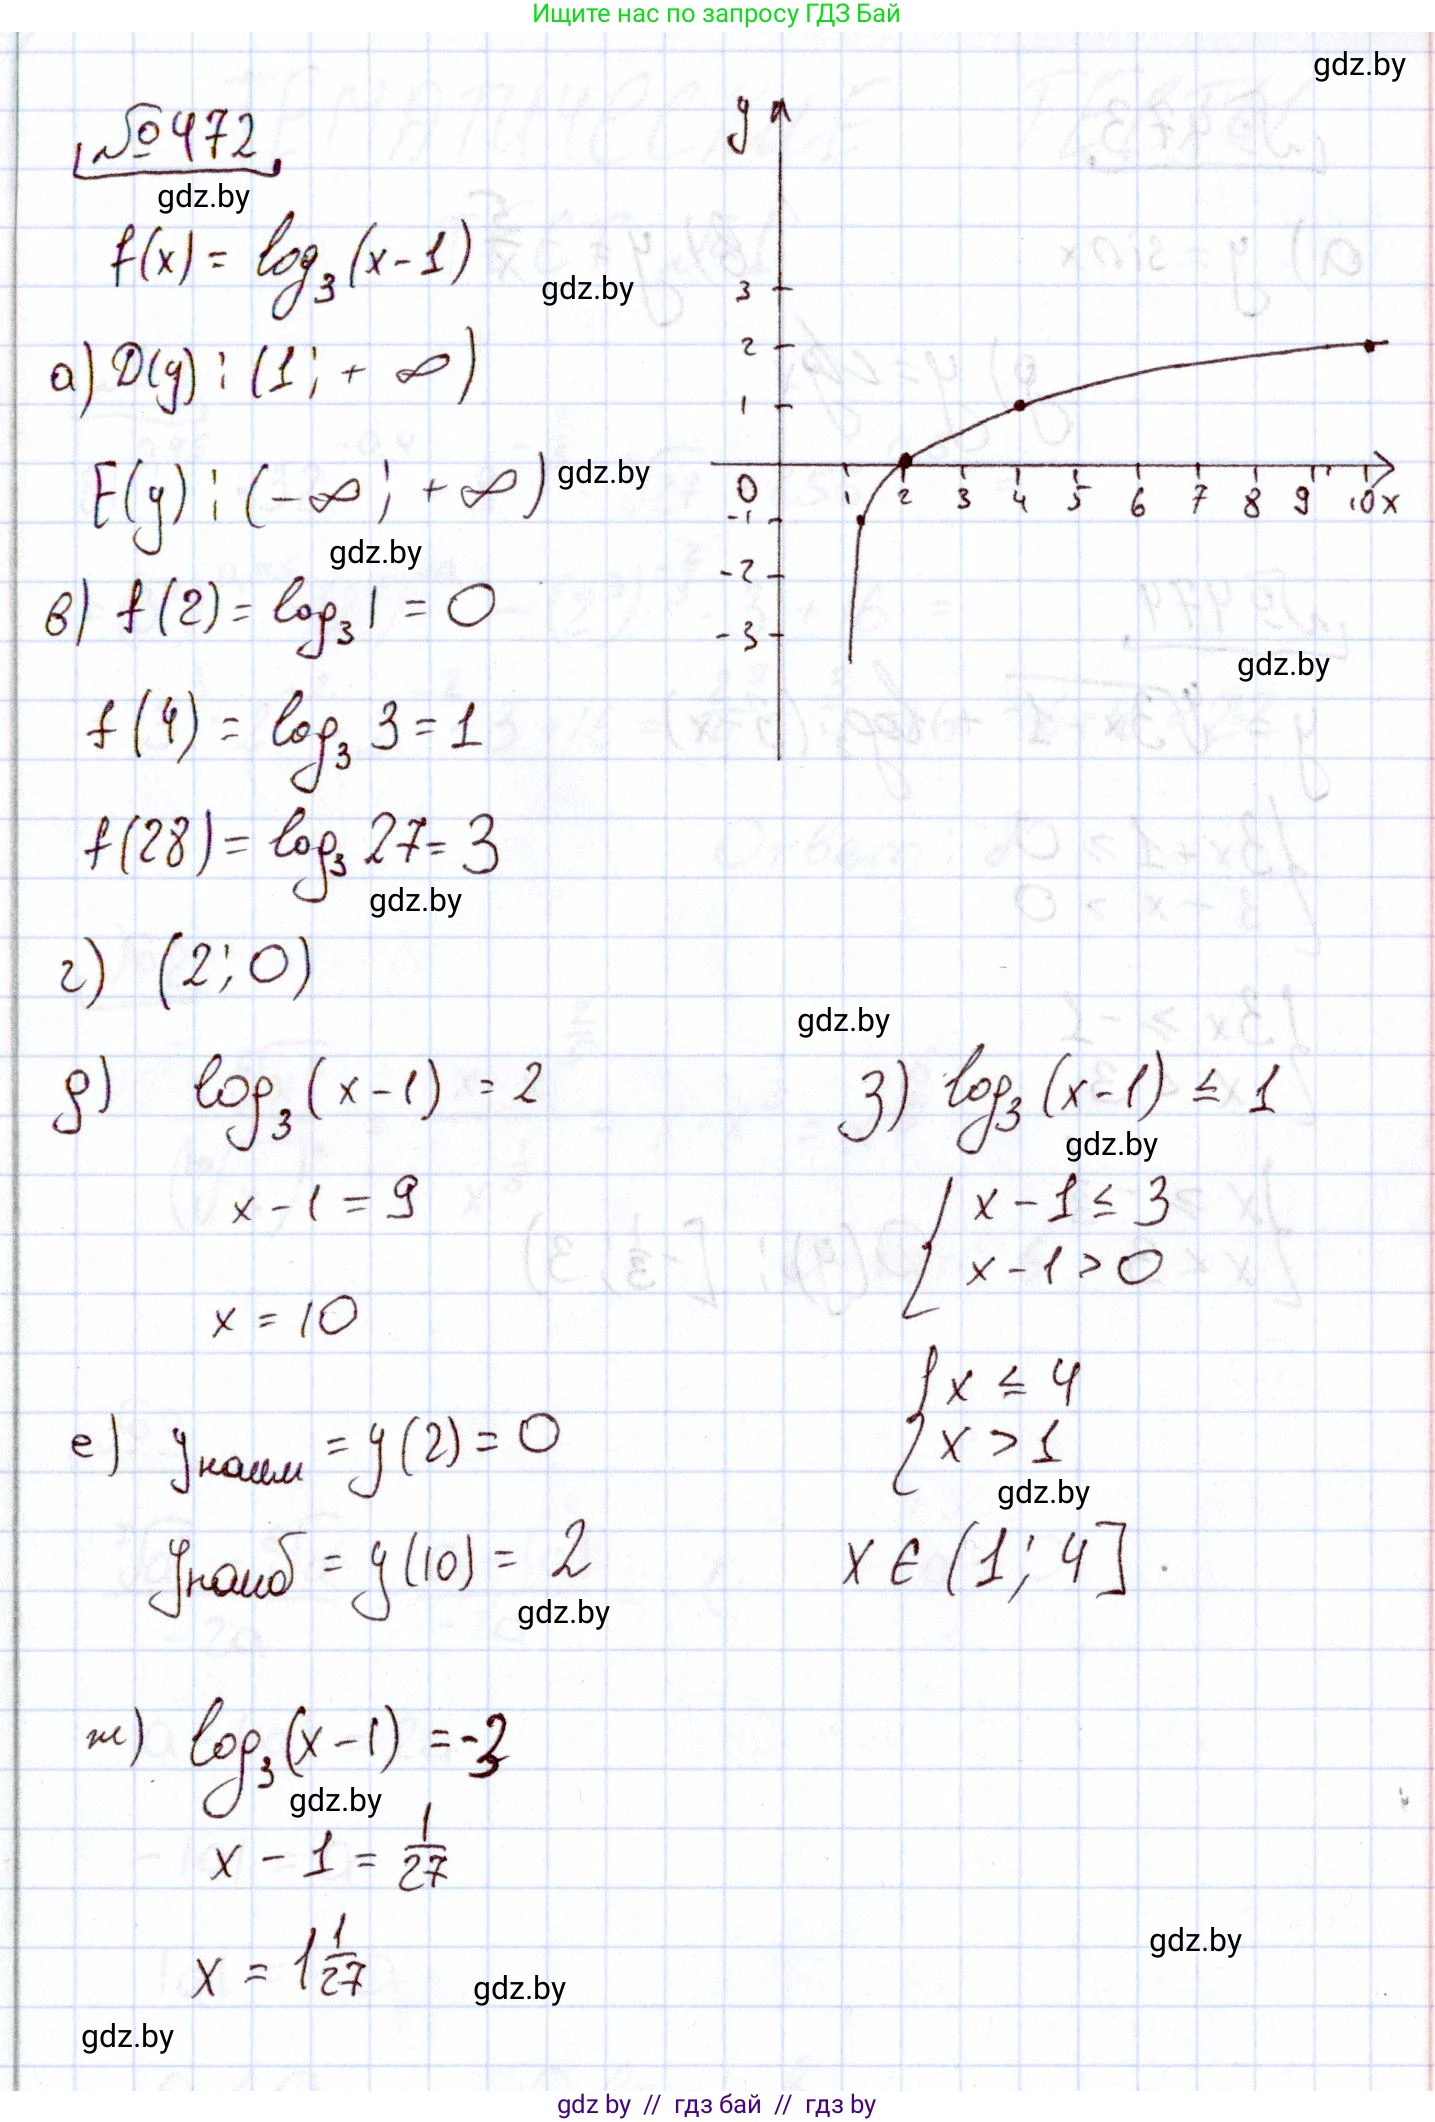 Ищите нас по запросу ГДЗ Бай
gdz.by
№472
gdz.by
f(x) = log₃(x-1)
gdz.by
а) D(y) : (1; +∞)
E(y) : (-∞; +∞)
gdz.by
gdz.by
y
3
2
1
0 1 2 3 4 5 6 7 8 9 10 x
-1
-2
-3
gdz.by
в) f(2) = log₃1 = 0
f(4) = log₃ 3 = 1
f(28) = log₃ 27 = 3
gdz.by
г) (2; 0)
д) log₃(x-1) = 2
x-1 = 9
x = 10
е) yнаим = y(2) = 0
yнаиб = y(10) = 2
gdz.by
ж) log₃(x-1) = -3
gdz.by
x - 1 = 1/27
x = 1 1/27
gdz.by
gdz.by
gdz.by
з) log₃(x-1) ≤ 1
gdz.by
{ x - 1 ≤ 3
x - 1 > 0
{ x ≤ 4
x > 1
gdz.by
x ∈ (1; 4].
gdz.by
gdz by // гдз бай // гдз by